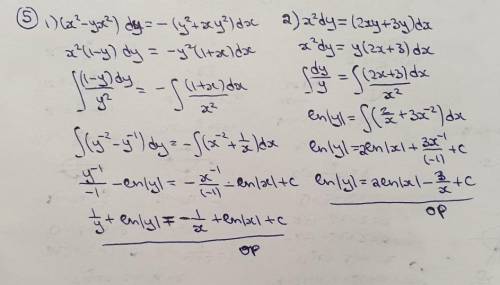 ⑤ 1) (x²-yx²) dy = -(y²+xy²)dx
x²(1-y) dy = -y²(1+x)dx
∫ (1-y)dy / y² = -∫ (1+x)dx / x²
∫(y⁻²-y⁻¹)dy = -∫(x⁻²+1/x)dx
y⁻¹/-1 - ln|y| = -x⁻¹/(-1) - ln|x| + c
1/y + ln|y| = -1/x + ln|x| + c
OP
2) x²dy = (2xy+3y)dx
x²dy = y(2x+3)dx
∫ dy/y = ∫ (2x+3)dx / x²
ln|y| = ∫(2/x + 3x⁻²)dx
ln|y| = 2ln|x| + 3x⁻¹/(-1) + c
ln|y| = 2ln|x| - 3/x + c
OP